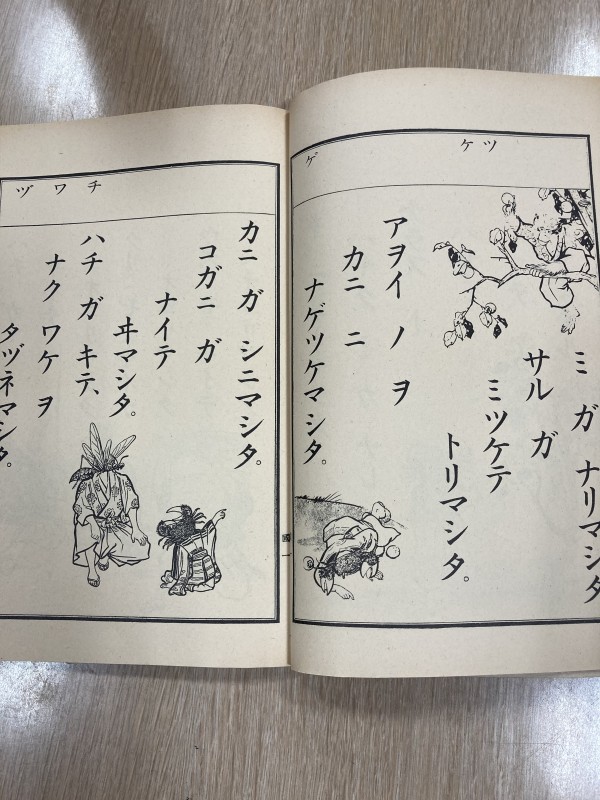 ツケ
ゲ
ミ ガ ナリマシタ
サル ガ
ミツケテ
トリマシタ。
アヲイ ノ ヲ
カニ ニ
ナゲツケマシタ。
チワヅ
カニ ガ シニマシタ。
コガニ ガ
ナイテ
ヰマシタ。
ハチ ガ キテ、
ナク ワケ ヲ
タヅネマシタ。